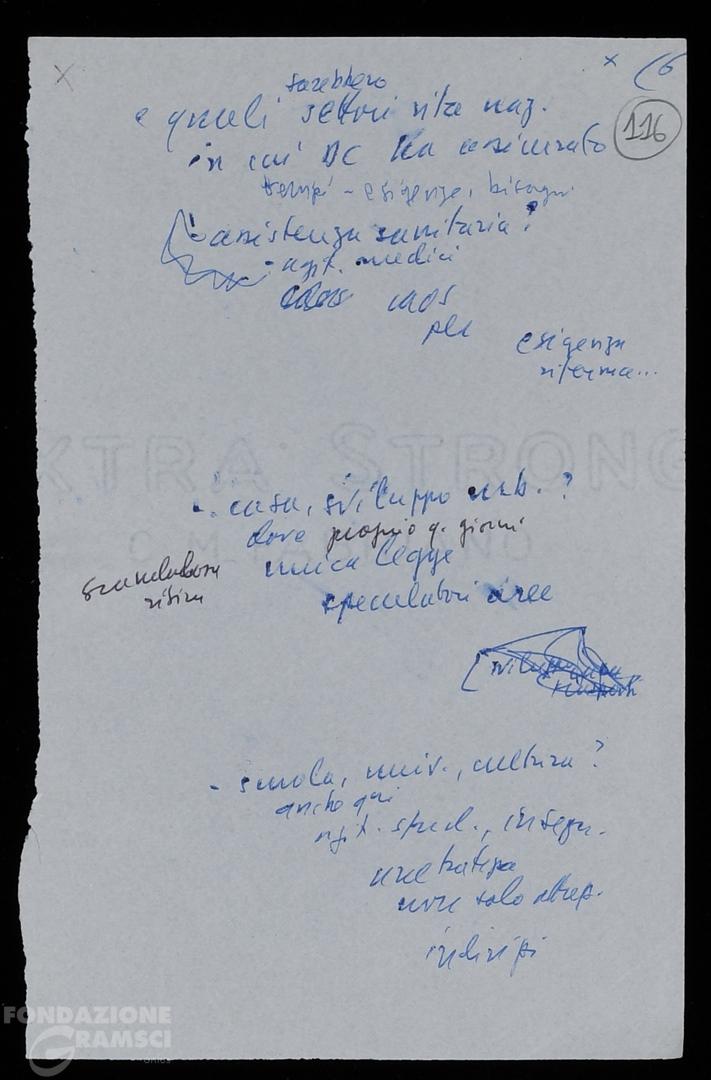 x
x 6
116
sarebbero
e quali settori vita naz.
in cui DC ha assicurato
tempi - esigenze, bisogni
- assistenza sanitaria?
- agit. medici
caos
per
esigenza
riforma...
EXTRA STRONG
- casa, sviluppo urb. ?
dove proprio q. giorni
unica legge
scandalosa
speculatori aree
- scuola, univ., cultura?
anche qui
agit. stud., insegn.
non solo attrez.
indirizzi
FONDAZIONE
GRAMSCI